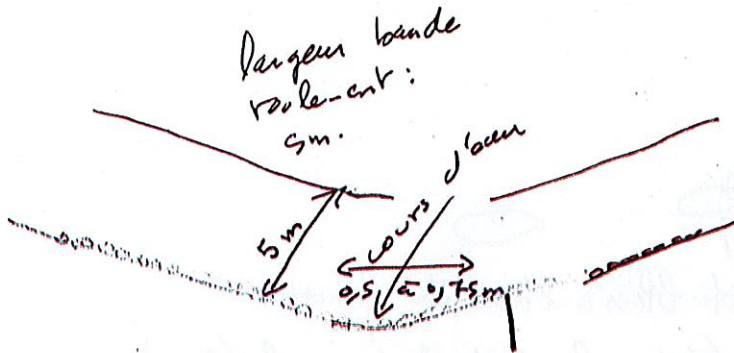 largeur bande
roulement :
5m.
5m
cours d'eau
0,5 à 0,75m